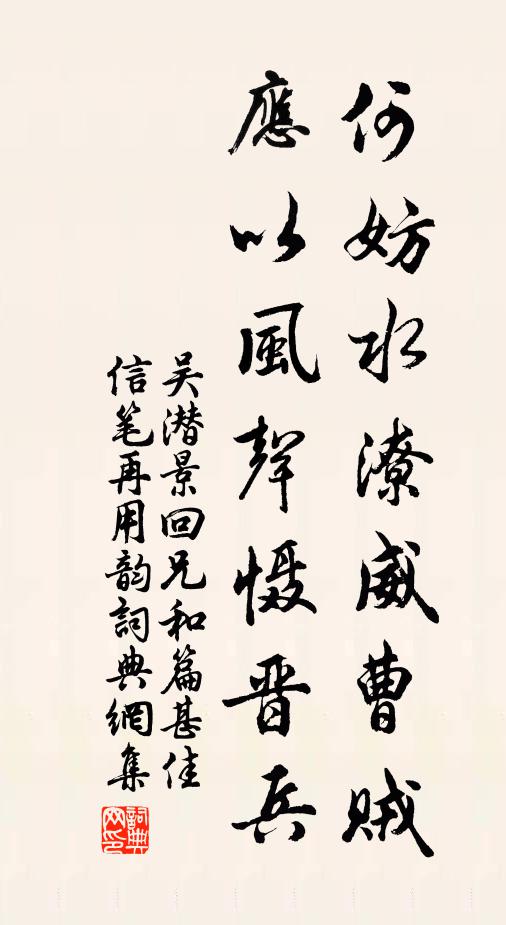 何妨水潦威曹贼
應以風聲慑晋兵
吴潜景回兄和篇甚佳
信笔再用韵詞典網集
詞典
网印